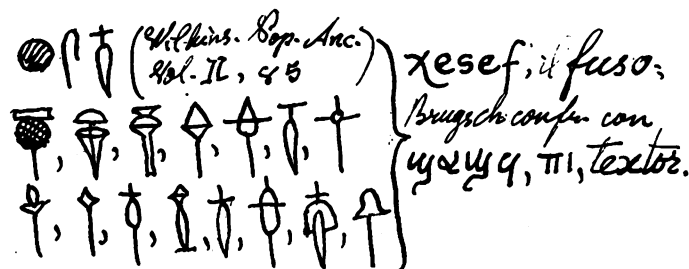 (Wilkins. Pop. Anc.
Vol. II, 85)
χesef, il fuso;
Brugsch confr. con
ϣⲁϣϥ, ⲡⲓ, textor.